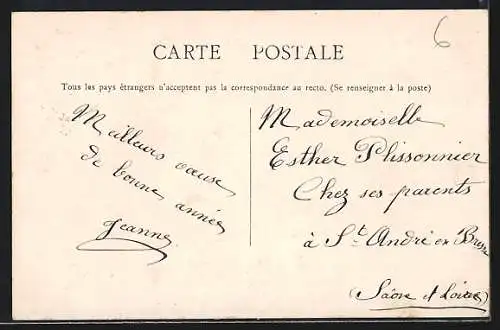 6
CARTE POSTALE
Tous les pays étrangers n'acceptent pas la correspondance au recto. (Se renseigner à la poste)
Meilleurs vœux
de bonne année
Jeanne
Mademoiselle
Esther Plissonnier
Chez ses parents
à St André en Bresse
(Sâone et Loire)